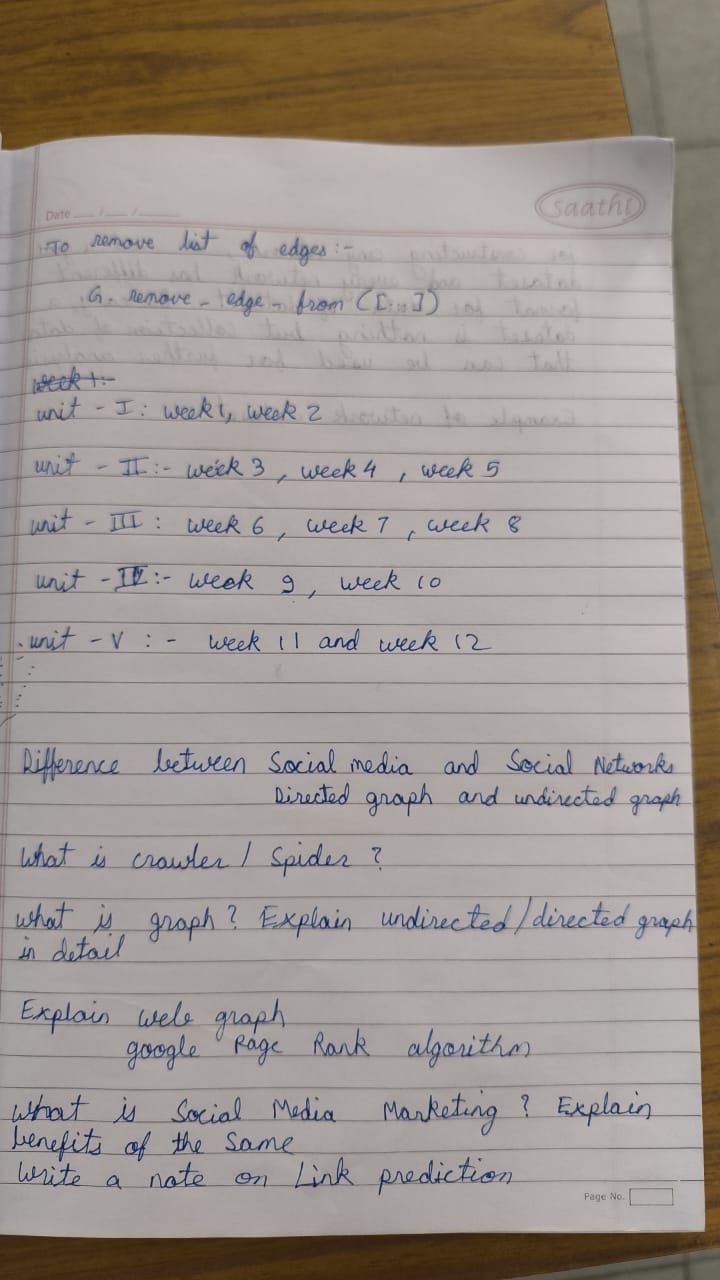 Date __/__/__
saathi
To remove list of edges :-
G. remove - edge - from ([...])
week 1:-
unit - I : week 1, week 2
unit - II :- week 3 , week 4 , week 5
unit - III : week 6 , week 7 , week 8
unit - IV :- week 9 , week 10
unit - V : - week 11 and week 12
Difference between Social media and Social Networks
Directed graph and undirected graph
What is crawler / Spider ?
what is graph ? Explain undirected/directed graph
in detail
Explain web graph
google Page Rank algorithm
What is Social Media Marketing ? Explain
benefits of the same
Write a note on Link prediction
Page No.